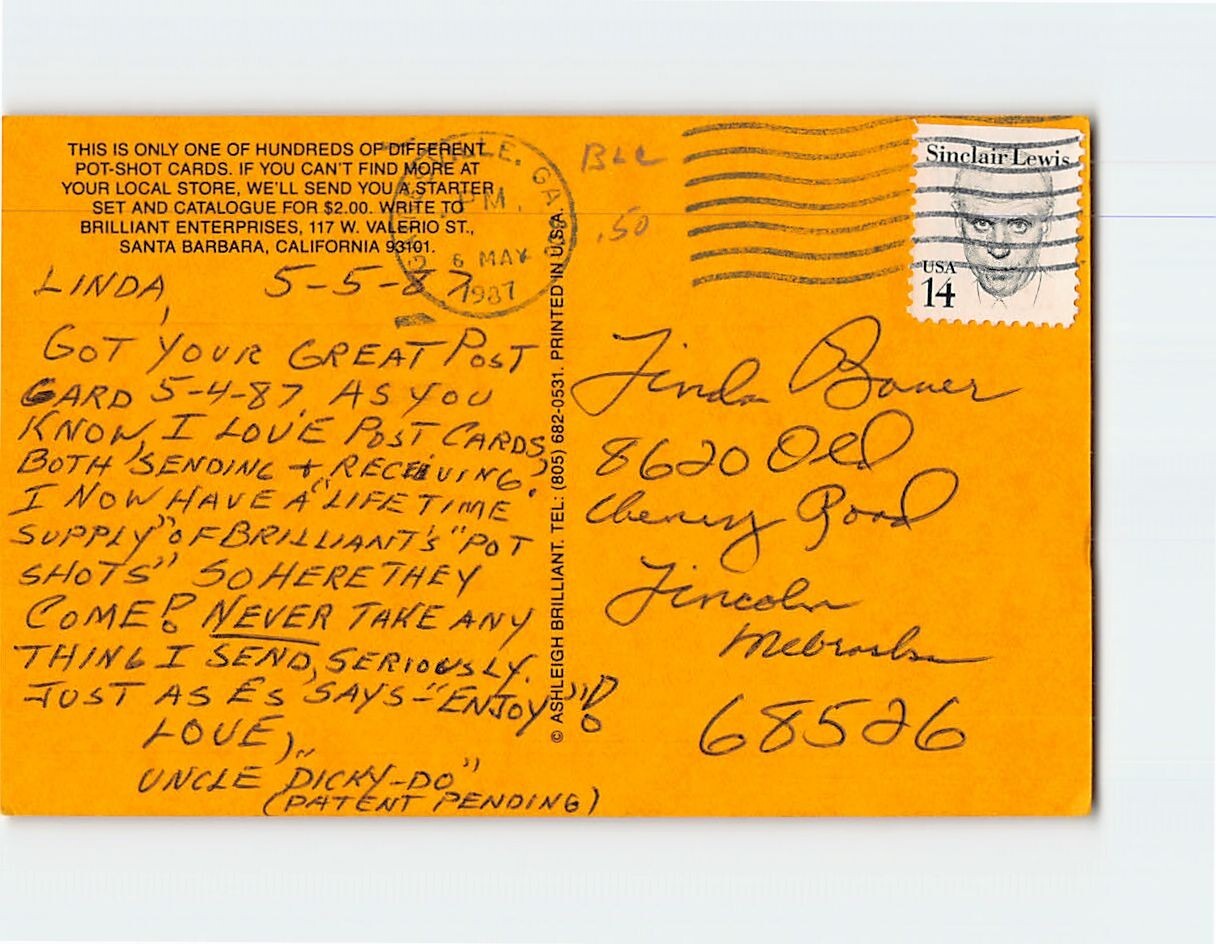 THIS IS ONLY ONE OF HUNDREDS OF DIFFERENT
POT-SHOT CARDS. IF YOU CAN'T FIND MORE AT
YOUR LOCAL STORE, WE'LL SEND YOU A STARTER
SET AND CATALOGUE FOR $2.00. WRITE TO
BRILLIANT ENTERPRISES, 117 W. VALERIO ST.,
SANTA BARBARA, CALIFORNIA 93101.
LINDA, 5-5-87
GOT YOUR GREAT POST
CARD 5-4-87. AS YOU
KNOW, I LOVE POST CARDS,
BOTH SENDING + RECEIVING.
I NOW HAVE A "LIFE TIME
SUPPLY" OF BRILLIANT'S "POT
SHOTS" SO HERE THEY
COME! NEVER TAKE ANY
THING I SEND, SERIOUSLY.
JUST AS ES SAYS - "ENJOY"!
LOVE,
UNCLE "DICKY-DO"
(PATENT PENDING)
© ASHLEIGH BRILLIANT. TEL: (805) 682-0531. PRINTED IN U.S.A.
GA
PM
6 MAY
1987
BLL
.50
Sinclair Lewis
USA
14
Linda Bauer
8620 Old
Cheney Road
Lincoln
Nebraska
68526